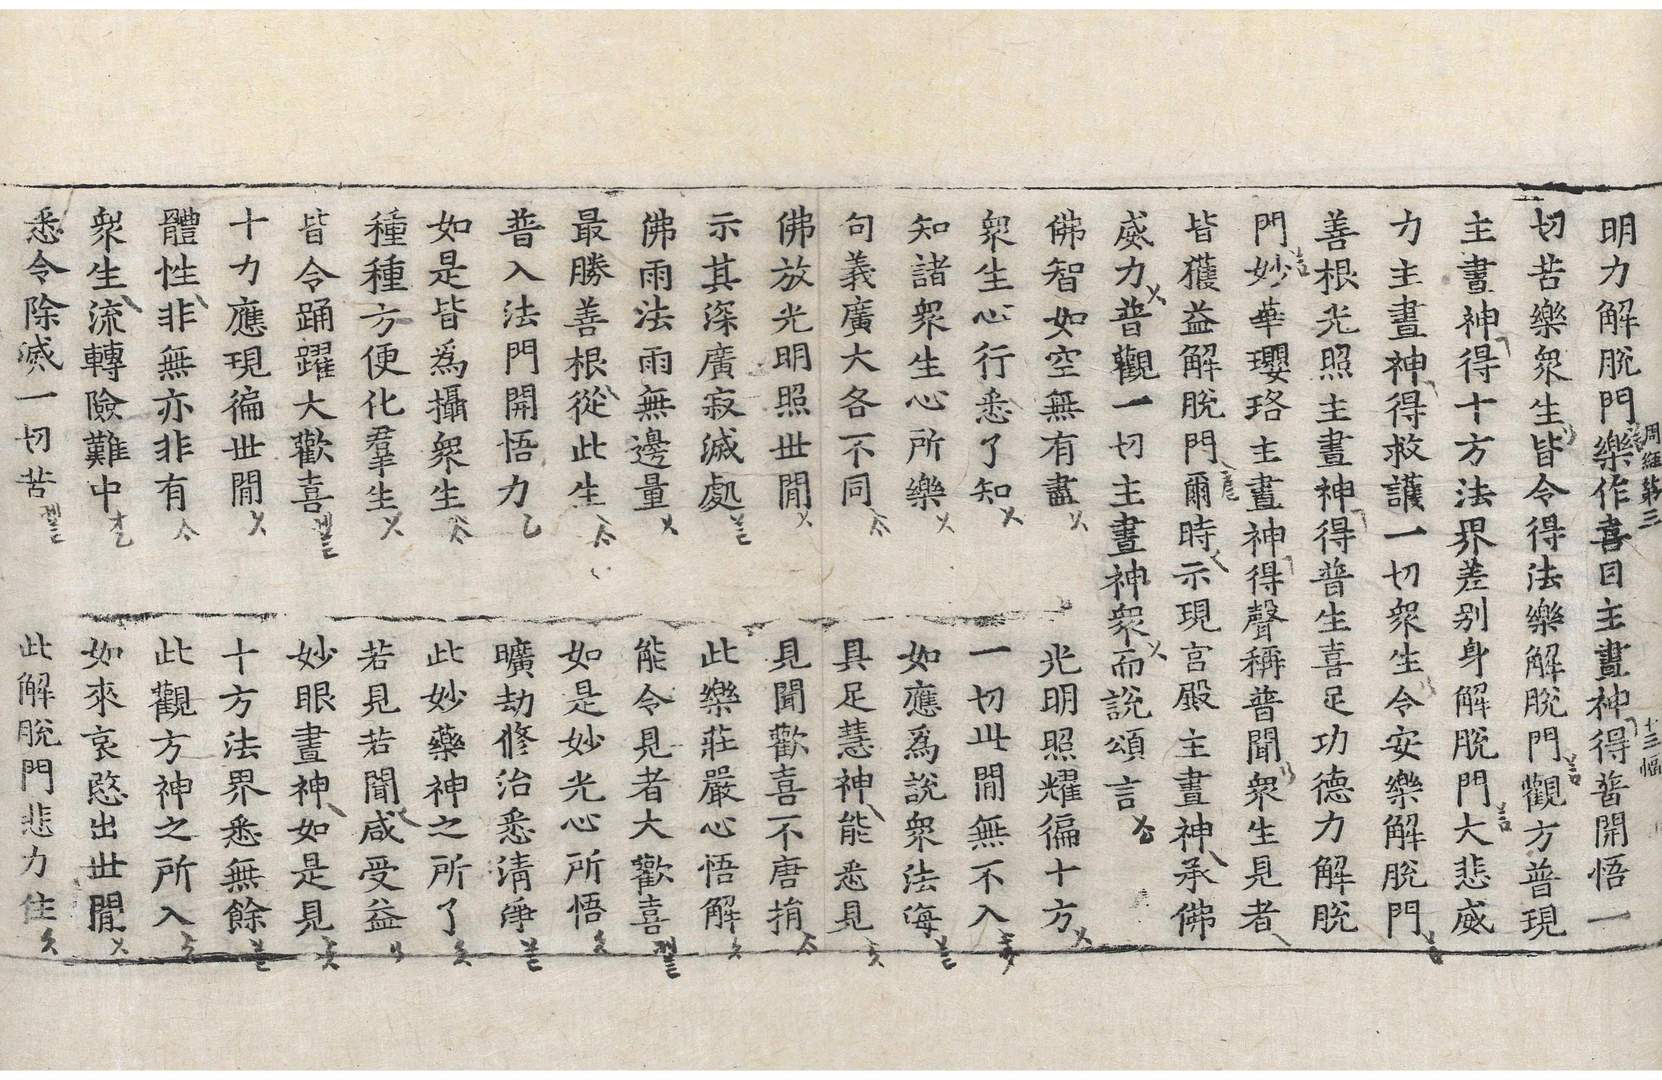 明力解脫門樂作喜目主晝神得普開悟一
周經第三 十三幅
切苦樂衆生皆令得法樂解脫門觀方普現
主晝神得十方法界差别身解脫門大悲威
力主晝神得救護一切衆生令安樂解脫門
善根光照主晝神得普生喜足功德力解脫
門妙華瓔珞主晝神得聲稱普聞衆生見者
皆獲益解脫門爾時示現宮殿主晝神承佛
威力普觀一切主晝神衆而說頌言
佛智如空無有盡 光明照耀徧十方
衆生心行悉了知 一切世間無不入
知諸衆生心所樂 如應爲說衆法海
句義廣大各不同 具足慧神能悉見
佛放光明照世間 見聞歡喜不唐捐
示其深廣寂滅處 此樂莊嚴心悟解
佛雨法雨無邊量 能令見者大歡喜
最勝善根從此生 如是妙光心所悟
普入法門開悟力 曠劫修治悉淸淨
如是皆爲攝衆生 此妙藥神之所了
種種方便化羣生 若見若聞咸受益
皆令踊躍大歡喜 妙眼晝神如是見
十力應現徧世間 十方法界悉無餘
體性非無亦非有 此觀方神之所入
衆生流轉險難中 如來哀愍出世間
悉令除滅一切苦 此解脫門悲力住